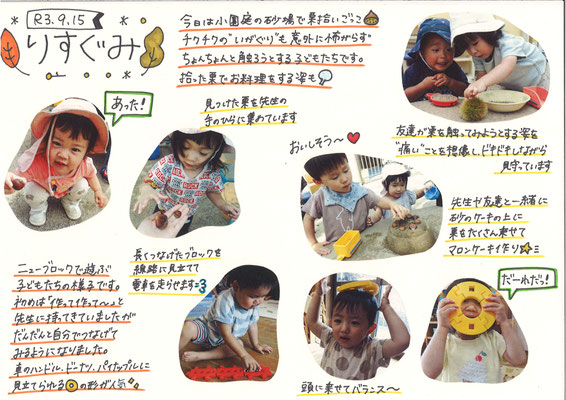 R3.9.15
りすぐみ
今日は小園庭の砂場で栗拾いごっこ
チクチクの"いがぐり"も意外に怖がらず
ちょんちょんと触ろうとする子どもたちです。
拾った栗でお料理をする姿も
あった!
見つけた栗を先生の
手のひらに集めています
友達が栗を触ってみようとする姿を
"痛い"ことを想像し、ドキドキしながら
見守っています
おいしそう〜
先生や友達と一緒に
砂のケーキの上に
栗をたくさん乗せて
マロンケーキ作り
ニューブロックで遊ぶ
子どもたちの様子です。
初めは「作って作って〜」と
先生に持ってきていましたが
だんだんと自分でつなげて
みるようになりました。
車のハンドル、ドーナツ、パイナップルに
見立てられる の形が人気
長くつなげたブロックを
線路に見立てて
電車を走らせます
頭に乗せてバランス〜
だーれだっ!